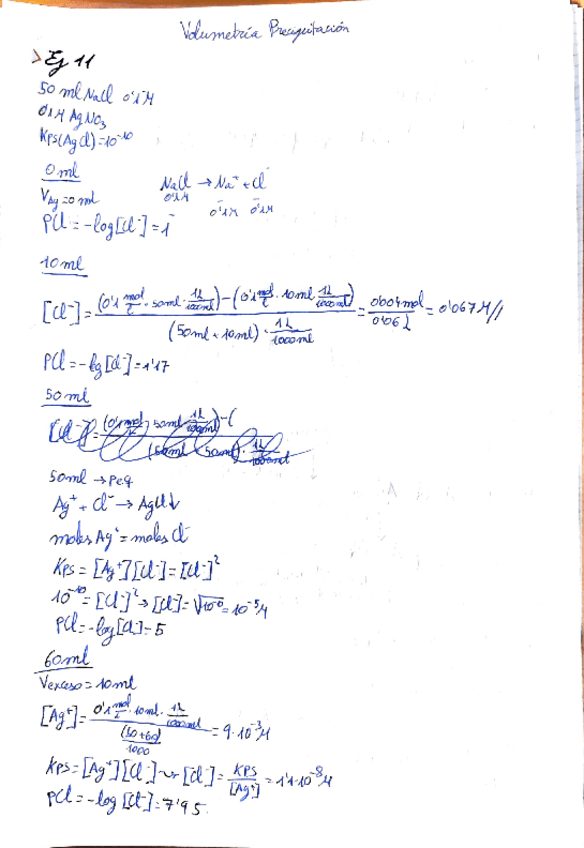 Volumetría Precipitación
> Ej 11
50 ml NaCl 0'1M
0'1M AgNO3
Kps(AgCl)=10^-10
0 ml
VAg = 0 ml NaCl → Na+ + Cl-
0'1M 0'1M 0'1M
PCl = -log[Cl-] = 1
10 ml
[Cl-] = ((0'1 mol/L · 50ml · 1L/1000ml) - (0'1 mol/L · 10ml · 1L/1000ml)) / ((50ml + 10ml) · 1L/1000ml) = 0'004mol/0'06L = 0'067M//
PCl = -log[Cl-] = 1'17
50 ml
50ml → Peq
Ag+ + Cl- → AgCl↓
moles Ag+ = moles Cl-
Kps = [Ag+][Cl-] = [Cl-]^2
10^-10 = [Cl-]^2 → [Cl-] = = 10^-5 M
PCl = -log[Cl-] = 5
60ml
Vexceso = 10ml
[Ag+] = (0'1 mol/L · 10ml · 1L/1000ml) / ((50+60)/1000) = 9·10^-3 M
Kps = [Ag+][Cl-] → [Cl-] = Kps/[Ag+] = 1'1·10^-8 M
PCl = -log[Cl-] = 7'95